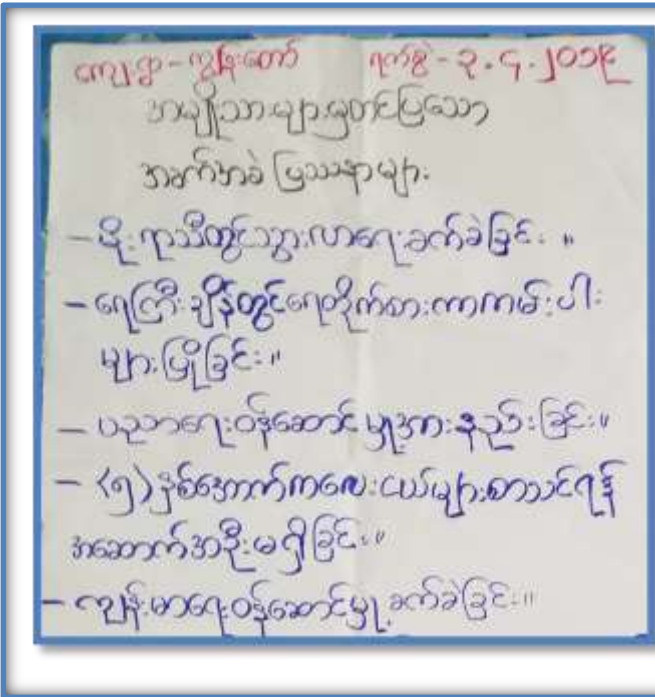 ကျေးရွာ - ကွန်းတော် ရက်စွဲ - ၃.၄.၂၀၁၉
အမျိုးသားများမှတင်ပြသော
အခက်အခဲ ပြဿနာများ
- မိုးရာသီတွင်သွားလာရေးခက်ခဲခြင်း ။
- ရေကြီးချိန်တွင်ရေတိုက်စားကာကမ်းပါး
များပြိုခြင်း ။
- ပညာရေးဝန်ဆောင်မှုအားနည်းခြင်း ။
- (၅) နှစ်အောက်ကလေးငယ်များစာသင်ရန်
အဆောက်အဦးမရှိခြင်း ။
- ကျန်းမာရေးဝန်ဆောင်မှု ခက်ခဲခြင်း ။